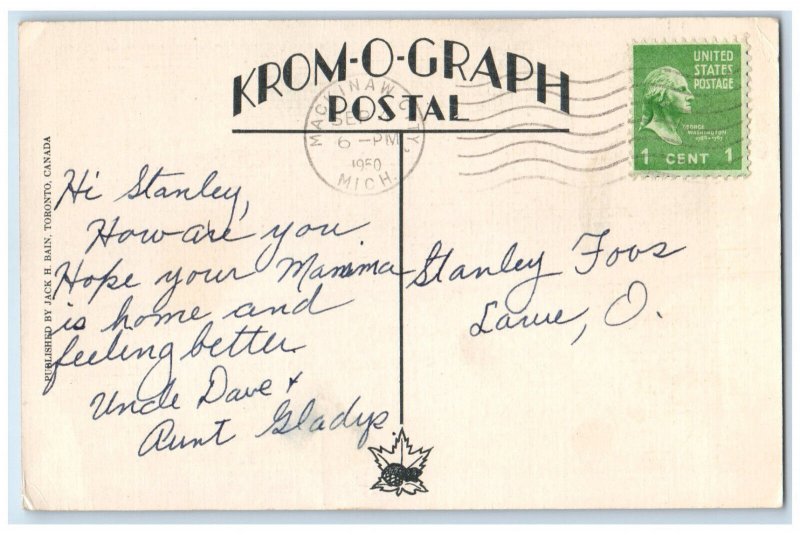 KROM-O-GRAPH
POSTAL
MACKINAW CITY,
SEP
6-PM
1950
MICH.
UNITED
STATES
POSTAGE
GEORGE
WASHINGTON
1789-1797
1 CENT 1
PUBLISHED BY JACK H. BAIN, TORONTO, CANADA
Hi Stanley,
How are you
Hope your Mamma
is home and
feeling better
Uncle Dave +
Aunt Gladys
Stanley Foos
Larue, O.